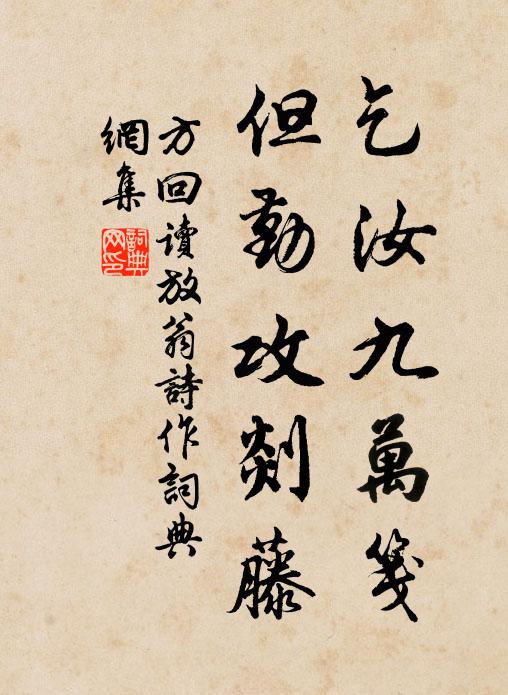 乞汝九萬箋
但勤攻剡藤
方回讀放翁詩作詞典
網集
詞典
网印